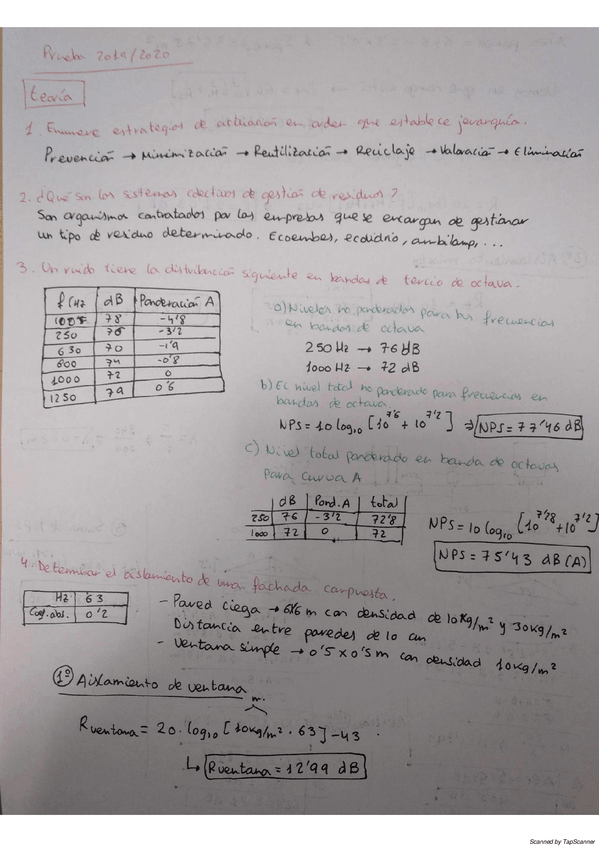 Prueba 2019/2020
teoría
1. Enumere estrategias de actuación en orden que establece jerarquía.
Prevención → Minimización → Reutilización → Reciclaje → Valoración → Eliminación
2. ¿Qué son los sistemas colectivos de gestión de residuos?
Son organismos contratados por las empresas que se encargan de gestionar
un tipo de residuo determinado. Ecoembes, ecovidrio, ambilamp, ...
3. Un ruido tiene la distribución siguiente en bandas de tercio de octava.
f (Hz dB Ponderación A
78 -4'8
250 76 -3'2
630 70 -1'9
800 74 -0'8
1000 72 0
1250 79 0'6
a) Niveles no ponderados para las frecuencias
en bandas de octava
250 Hz → 76 dB
1000 Hz → 72 dB
b) El nivel total no ponderado para frecuencias en
bandas de octava
NPS = 10 log₁₀ [10^7'6 + 10^7'2] ⇒ NPS = 77'46 dB
c) Nivel total ponderado en banda de octavas
para curva A
dB Pond. A total
250 76 -3'2 72'8
1000 72 0 72
NPS = 10 log₁₀ [10^7'28 + 10^7'2]
NPS = 75'43 dB (A)
4. Determinar el aislamiento de una fachada compuesta.
Hz 63
Coef. abs. 0'2
- Pared ciega → 6x6 m con densidad de 10Kg/m² y 30Kg/m²
Distancia entre paredes de 10 cm
- Ventana simple → 0'5 x 0'5 m con densidad 10Kg/m²
1º Aislamiento de ventana
m.
Rventana = 20 · log₁₀ [10Kg/m² · 63] - 43
↳ Rventana = 12'99 dB
Scanned by TapScanner